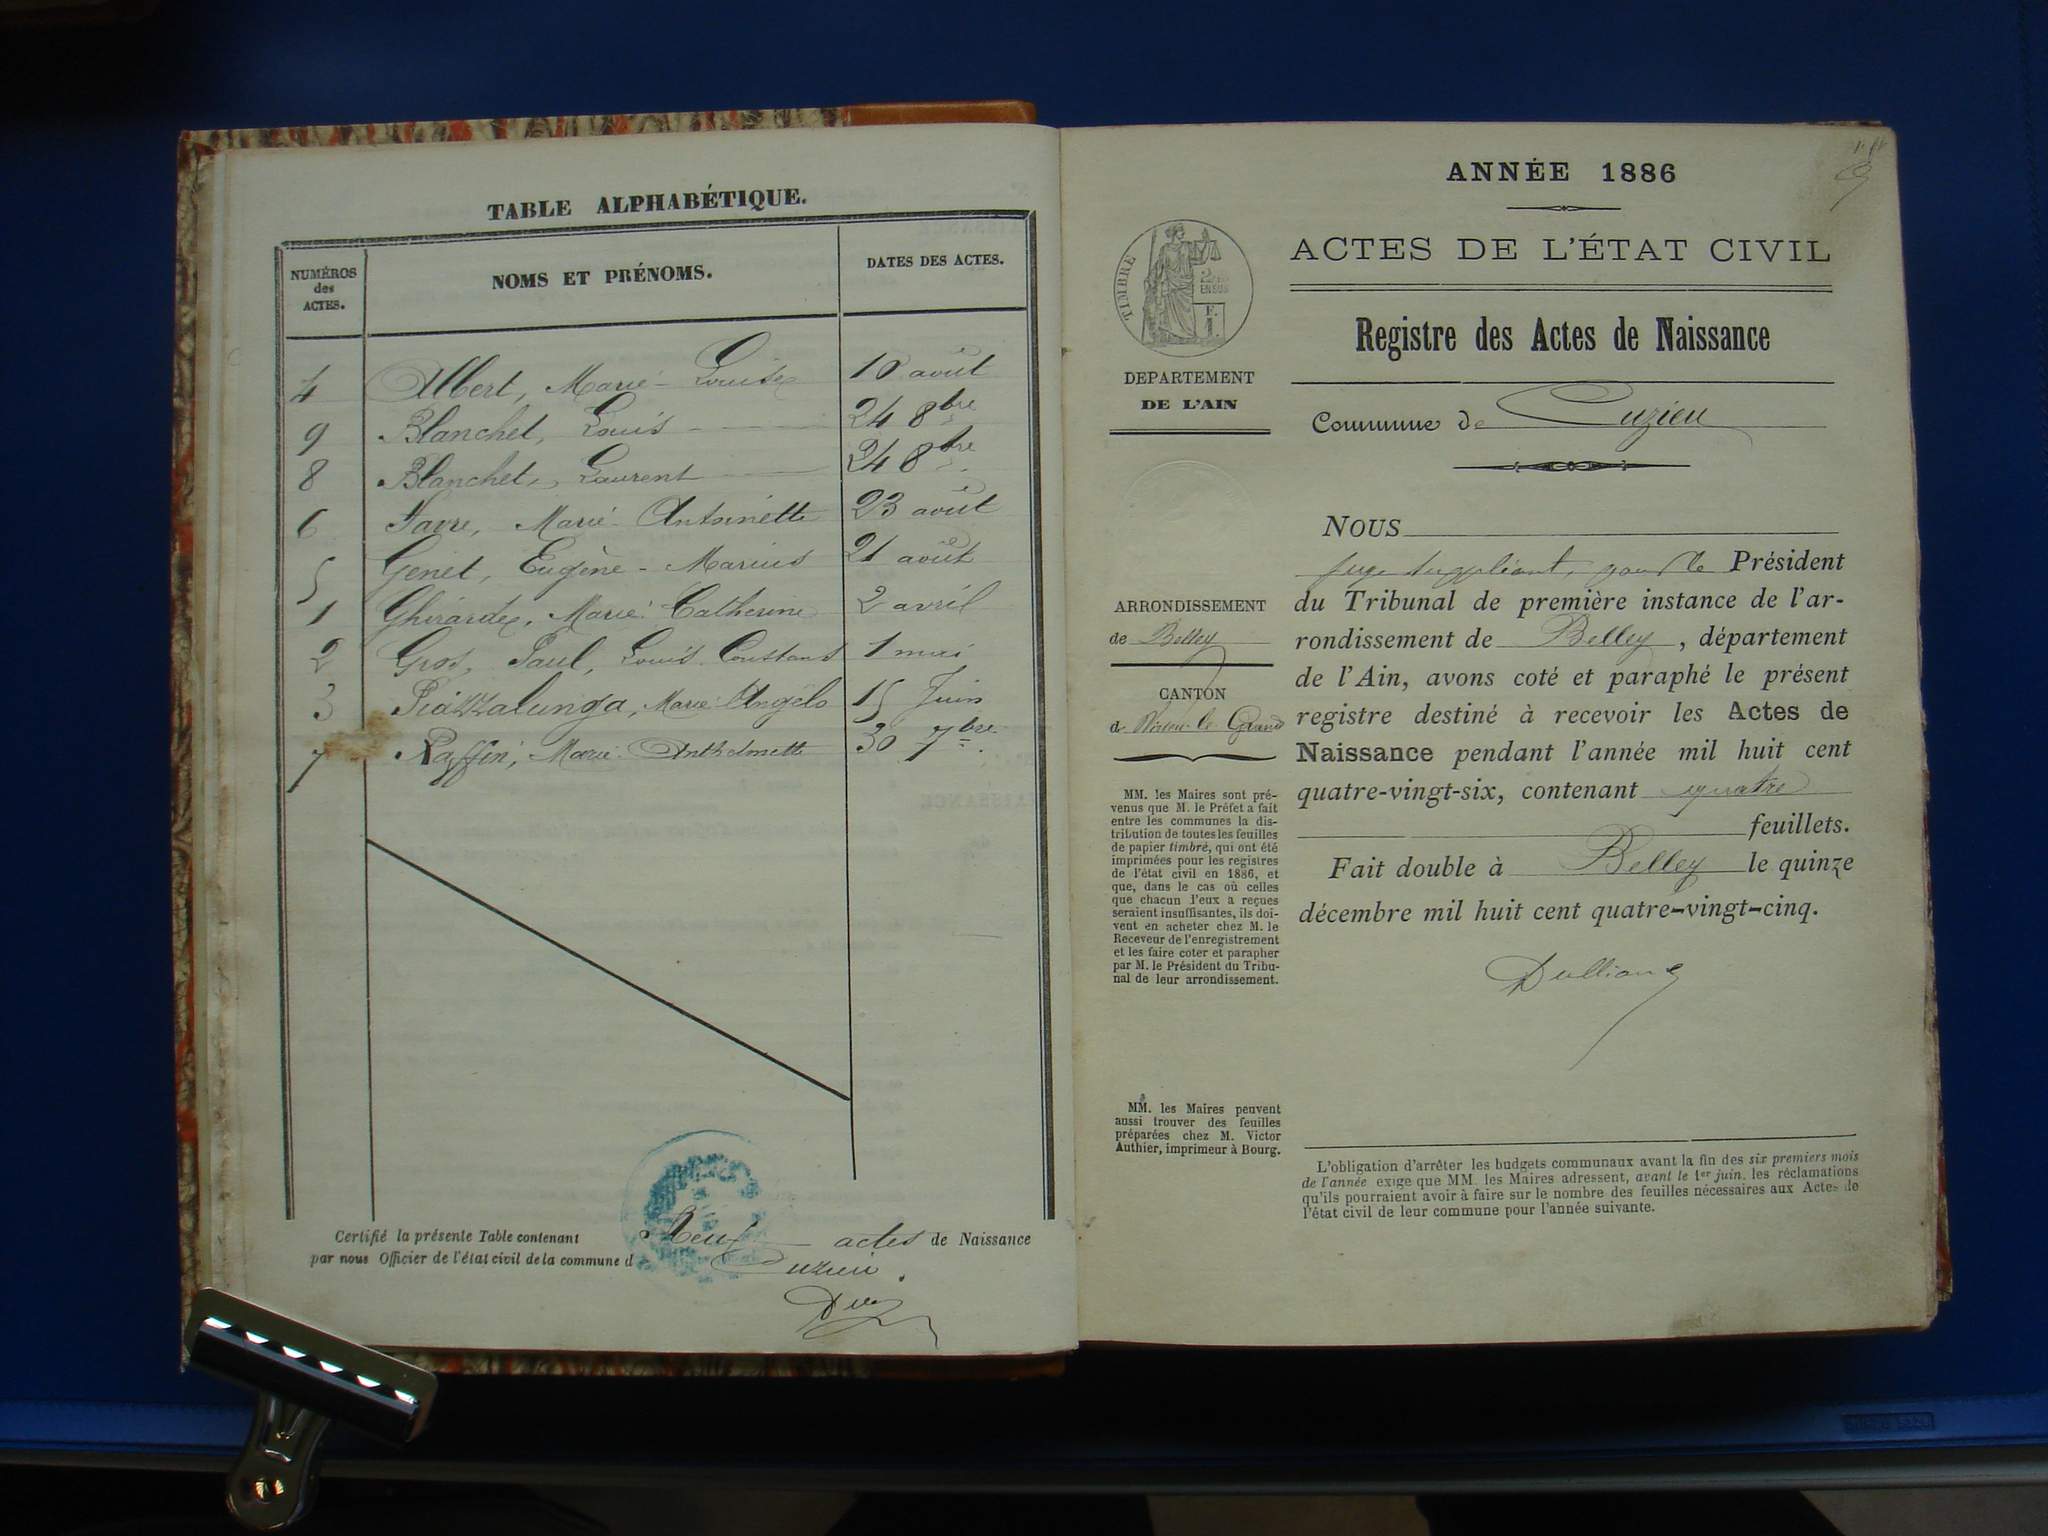 TABLE ALPHABÉTIQUE.
NUMÉROS
des
ACTES.
NOMS ET PRÉNOMS.
DATES DES ACTES.
4 Albert, Marie-Louise 10 août
9 Blanchet, Louis 24 8bre
8 Blanchet, Laurent 24 8bre
6 Favre, Marie-Antoinette 23 août
5 Genet, Eugène-Marius 21 août
1 Marie-Catherine 2 avril
2 Gros, Paul, Louis Constant 1 mai
3 Piazzalunga, Marie-Angelo 15 Juin
7 Raffin, Marie-Anthelmette 30 7bre
Certifié la présente Table contenant Neuf actes de Naissance
par nous Officier de l'état civil de la commune d Cuzieu.
ANNÉE 1886
ACTES DE L'ÉTAT CIVIL
Registre des Actes de Naissance
Commune de Cuzieu
TIMBRE
DEPARTEMENT
DE L'AIN
ARRONDISSEMENT
de Belley
CANTON
de Virieu-le-Grand
MM. les Maires sont pré-
venus que M. le Préfet a fait
entre les communes la dis-
tribution de toutes les feuilles
de papier timbré, qui ont été
imprimées pour les registres
de l'état civil en 1886, et
que, dans le cas où celles
que chacun d'eux a reçues
seraient insuffisantes, ils doi-
vent en acheter chez M. le
Receveur de l'enregistrement
et les faire coter et parapher
par M. le Président du Tribu-
nal de leur arrondissement.
MM. les Maires peuvent
aussi trouver des feuilles
préparées chez M. Victor
Authier, imprimeur à Bourg.
NOUS
juge suppléant, pour le Président
du Tribunal de première instance de l'ar-
rondissement de Belley, département
de l'Ain, avons coté et paraphé le présent
registre destiné à recevoir les Actes de
Naissance pendant l'année mil huit cent
quatre-vingt-six, contenant quatre
feuillets.
Fait double à Belley le quinze
décembre mil huit cent quatre-vingt-cinq.
L'obligation d'arrêter les budgets communaux avant la fin des six premiers mois
de l'année exige que MM. les Maires adressent, avant le 1er juin. les réclamations
qu'ils pourraient avoir à faire sur le nombre des feuilles nécessaires aux Actes de
l'état civil de leur commune pour l'année suivante.